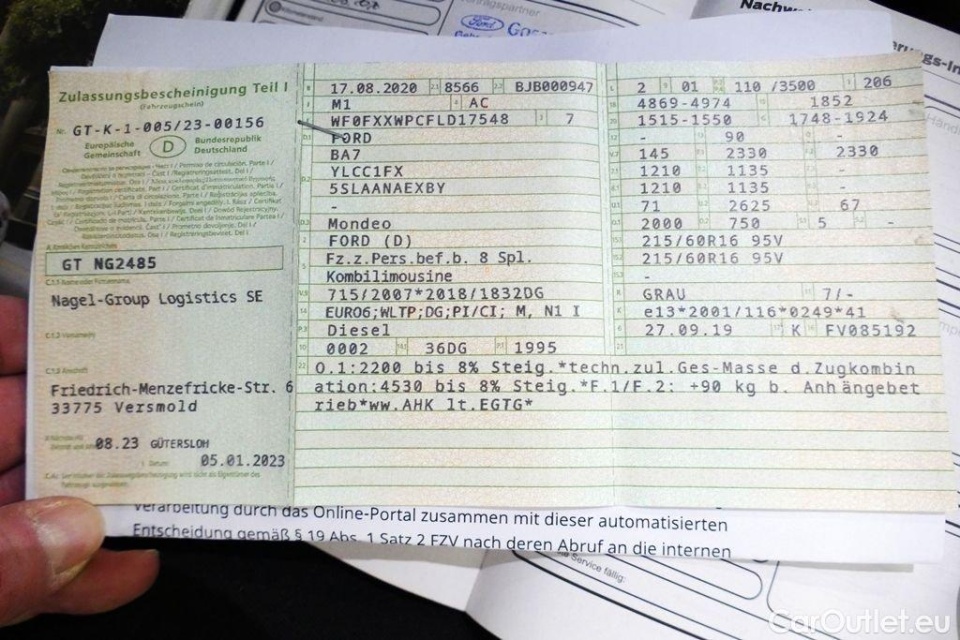 rtragspartner
Ford
Nachw
erungs-In
Zulassungsbescheinigung Teil I
(Fahrzeugschein)
Nr. GT-K-1-005/23-00156
Europäische
Gemeinschaft
D
Bundesrepublik
Deutschland
GT NG2485
Nagel-Group Logistics SE
Friedrich-Menzefricke-Str. 6
33775 Versmold
08.23 GÜTERSLOH
Datum 05.01.2023
17.08.2020 8566 BJB000947
M1 AC
WF0FXXWPCFLD17548 7
FORD
BA7
YLCC1FX
5SLAANAEXBY
-
Mondeo
FORD (D)
Fz.z.Pers.bef.b. 8 Spl.
Kombilimousine
715/2007*2018/1832DG
EURO6;WLTP;DG;PI/CI; M, N1 I
Diesel
0002 36DG 1995
2 01 110 /3500 206
4869-4974 1852
1515-1550 1748-1924
- 90 -
145 2330 2330
1210 1135 -
1210 1135 -
71 2625 67
2000 750 5 -
215/60R16 95V
215/60R16 95V
-
GRAU 7/-
e13*2001/116*0249*41
27.09.19 K FV085192
O.1:2200 bis 8% Steig.*techn.zul.Ges-Masse d.Zugkombin
ation:4530 bis 8% Steig.*F.1/F.2: +90 kg b. Anhängebet
rieb*ww.AHK lt.EGTG*
Verarbeitung durch das Online-Portal zusammen mit dieser automatisierten
Entscheidung gemäß § 19 Abs. 1 Satz 2 FZV nach deren Abruf an die internen
e Service fällig:
CarOutlet.eu